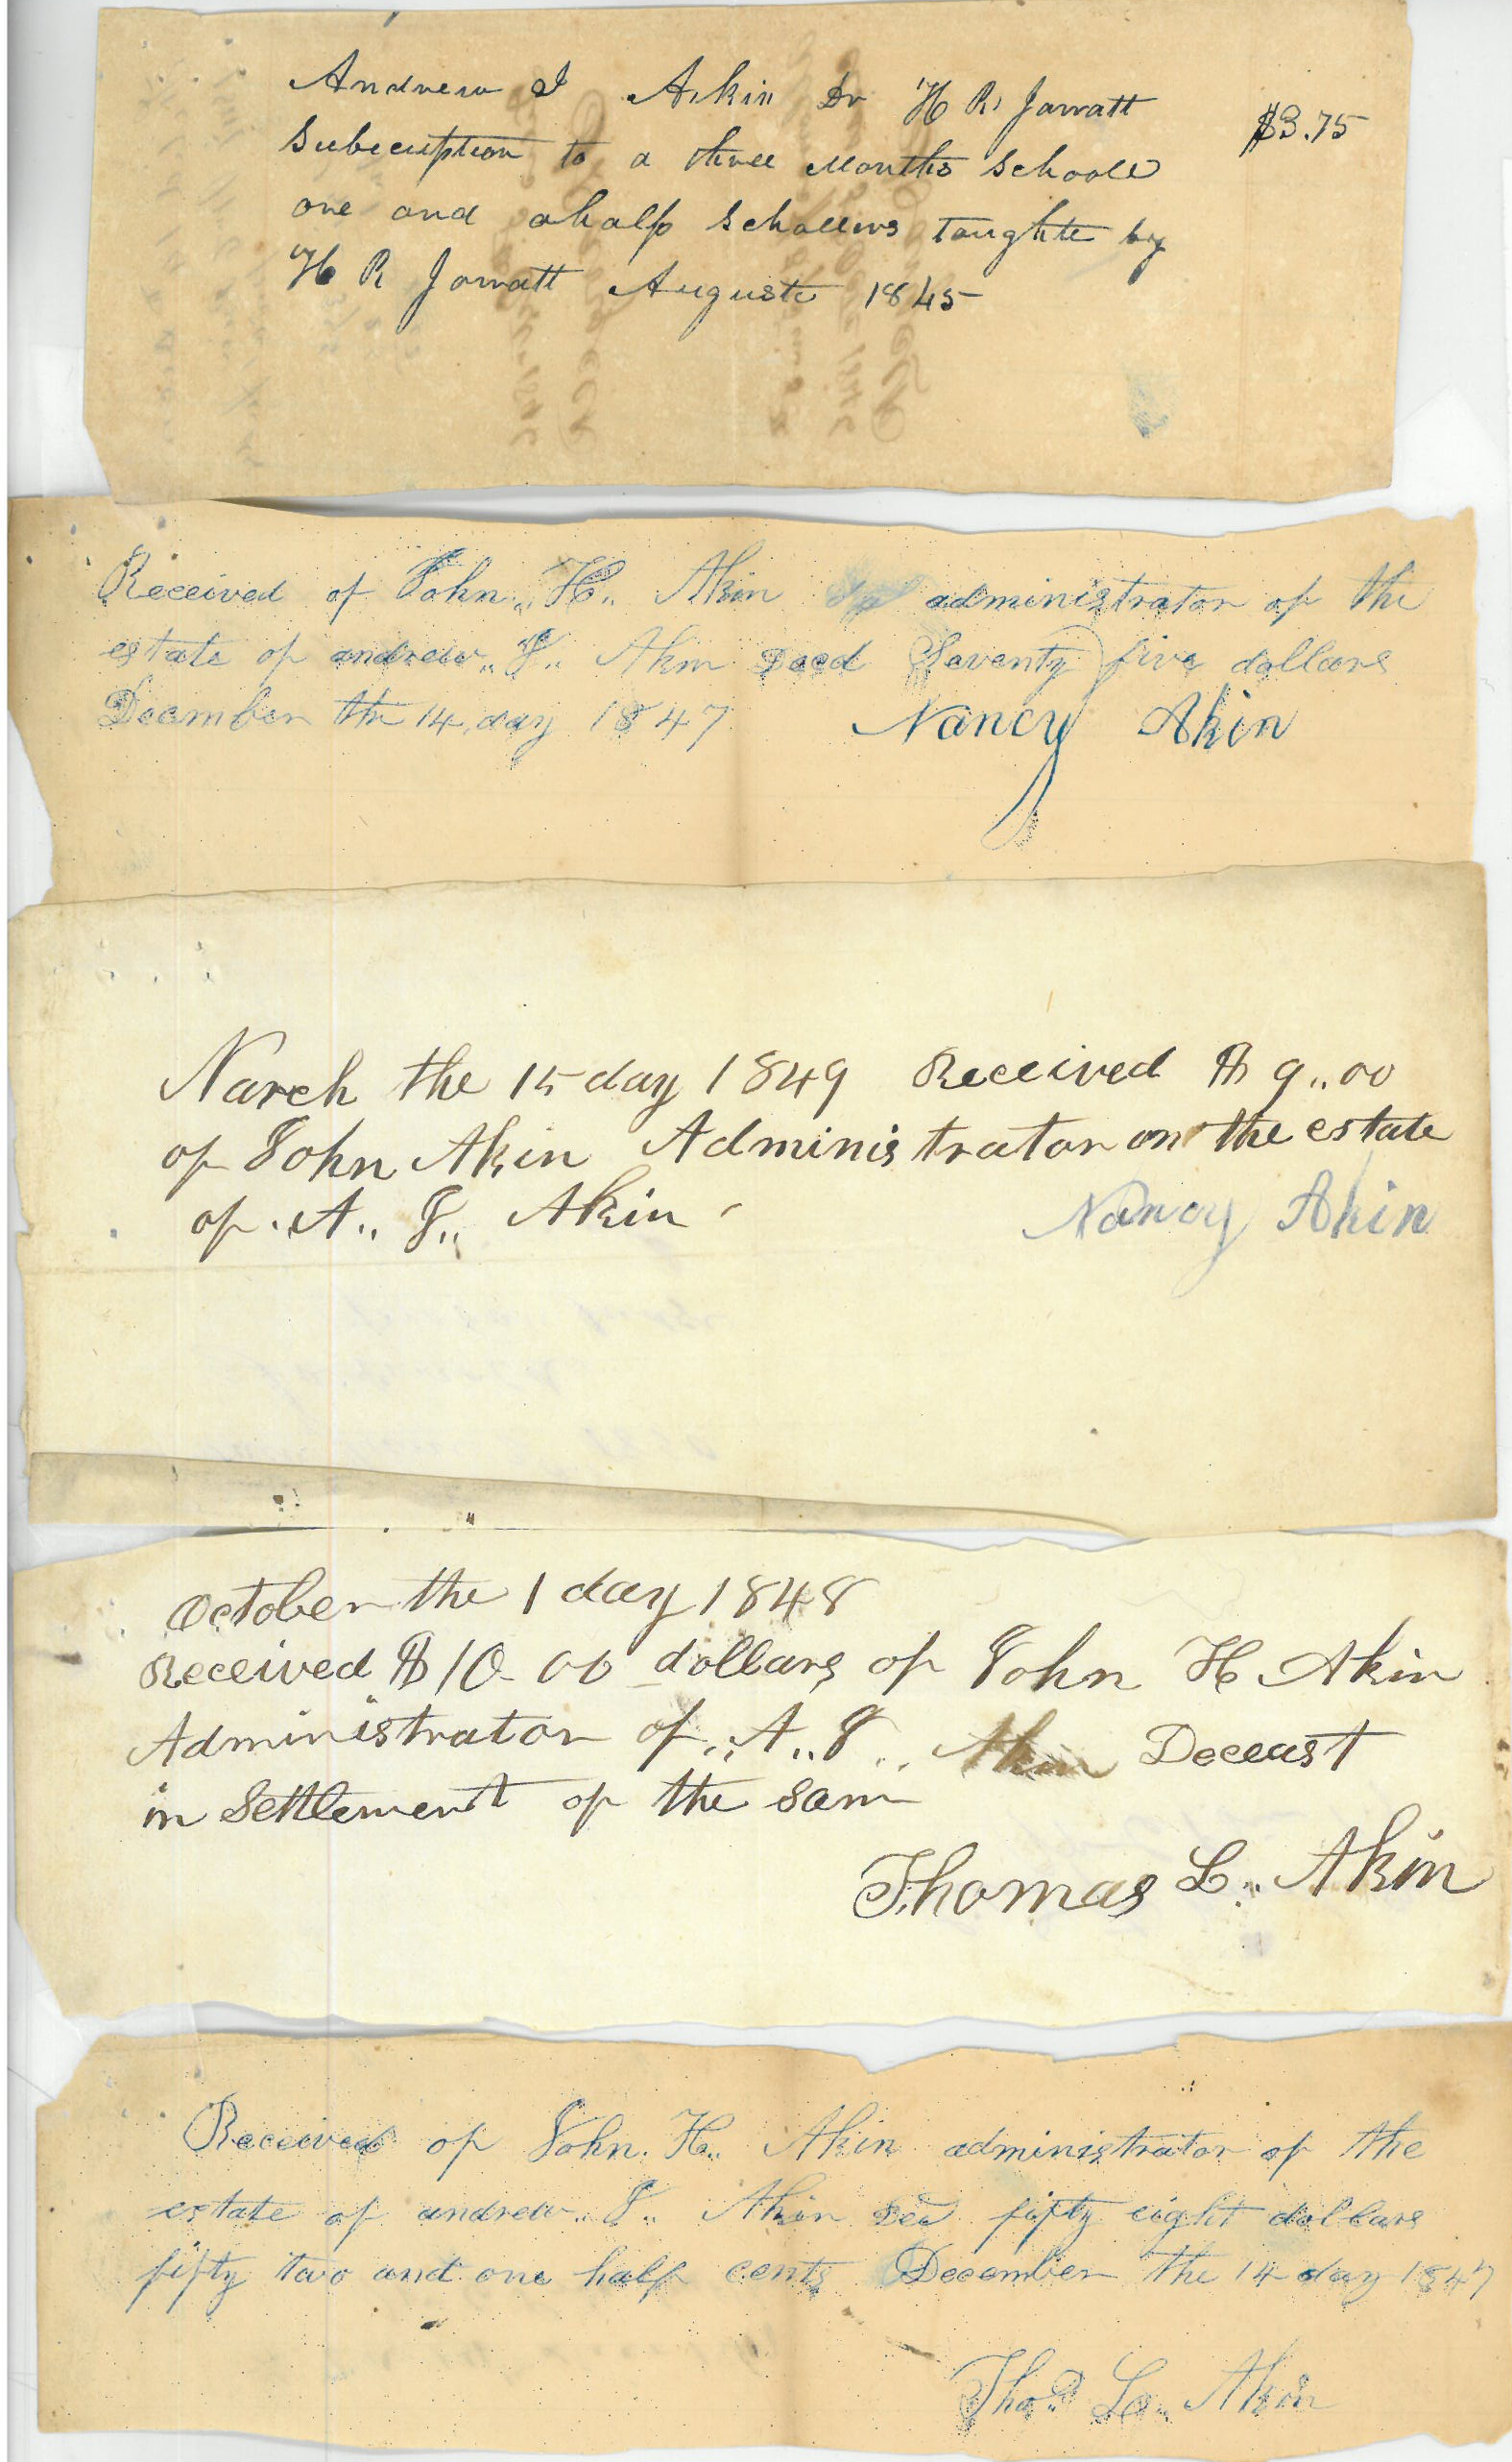 Andrew J Akin Dr H R Jarratt $3.75
Subscuption to a three Months Schoole
one and ahalf Schollers taughte by
H R Jarratt Auguste 1845
Received of John,, H,, Akin administrator of the
estate of andrew,, J,, Akin Decd Seventy five dollars
Decmber the 14 day 1847 Nancy Akin
March the 15 day 1849 Received $ 9,,00
of John Akin Administrator on the estate
of A,, J,, Akin
Nancy Akin
October the 1 day 1848
Received $ 10-00 dollars of John H Akin
Administrator of,, A,, J,, Akin Deceast
in Settlement of the Sam
Thomas L,, Akin
Received of John. H,, Akin administrator of the
estate of andrew,, J,, Akin Decd fifty eight dollars
fifty two and one half cents December the 14 day 1847
Thos L,, Akin